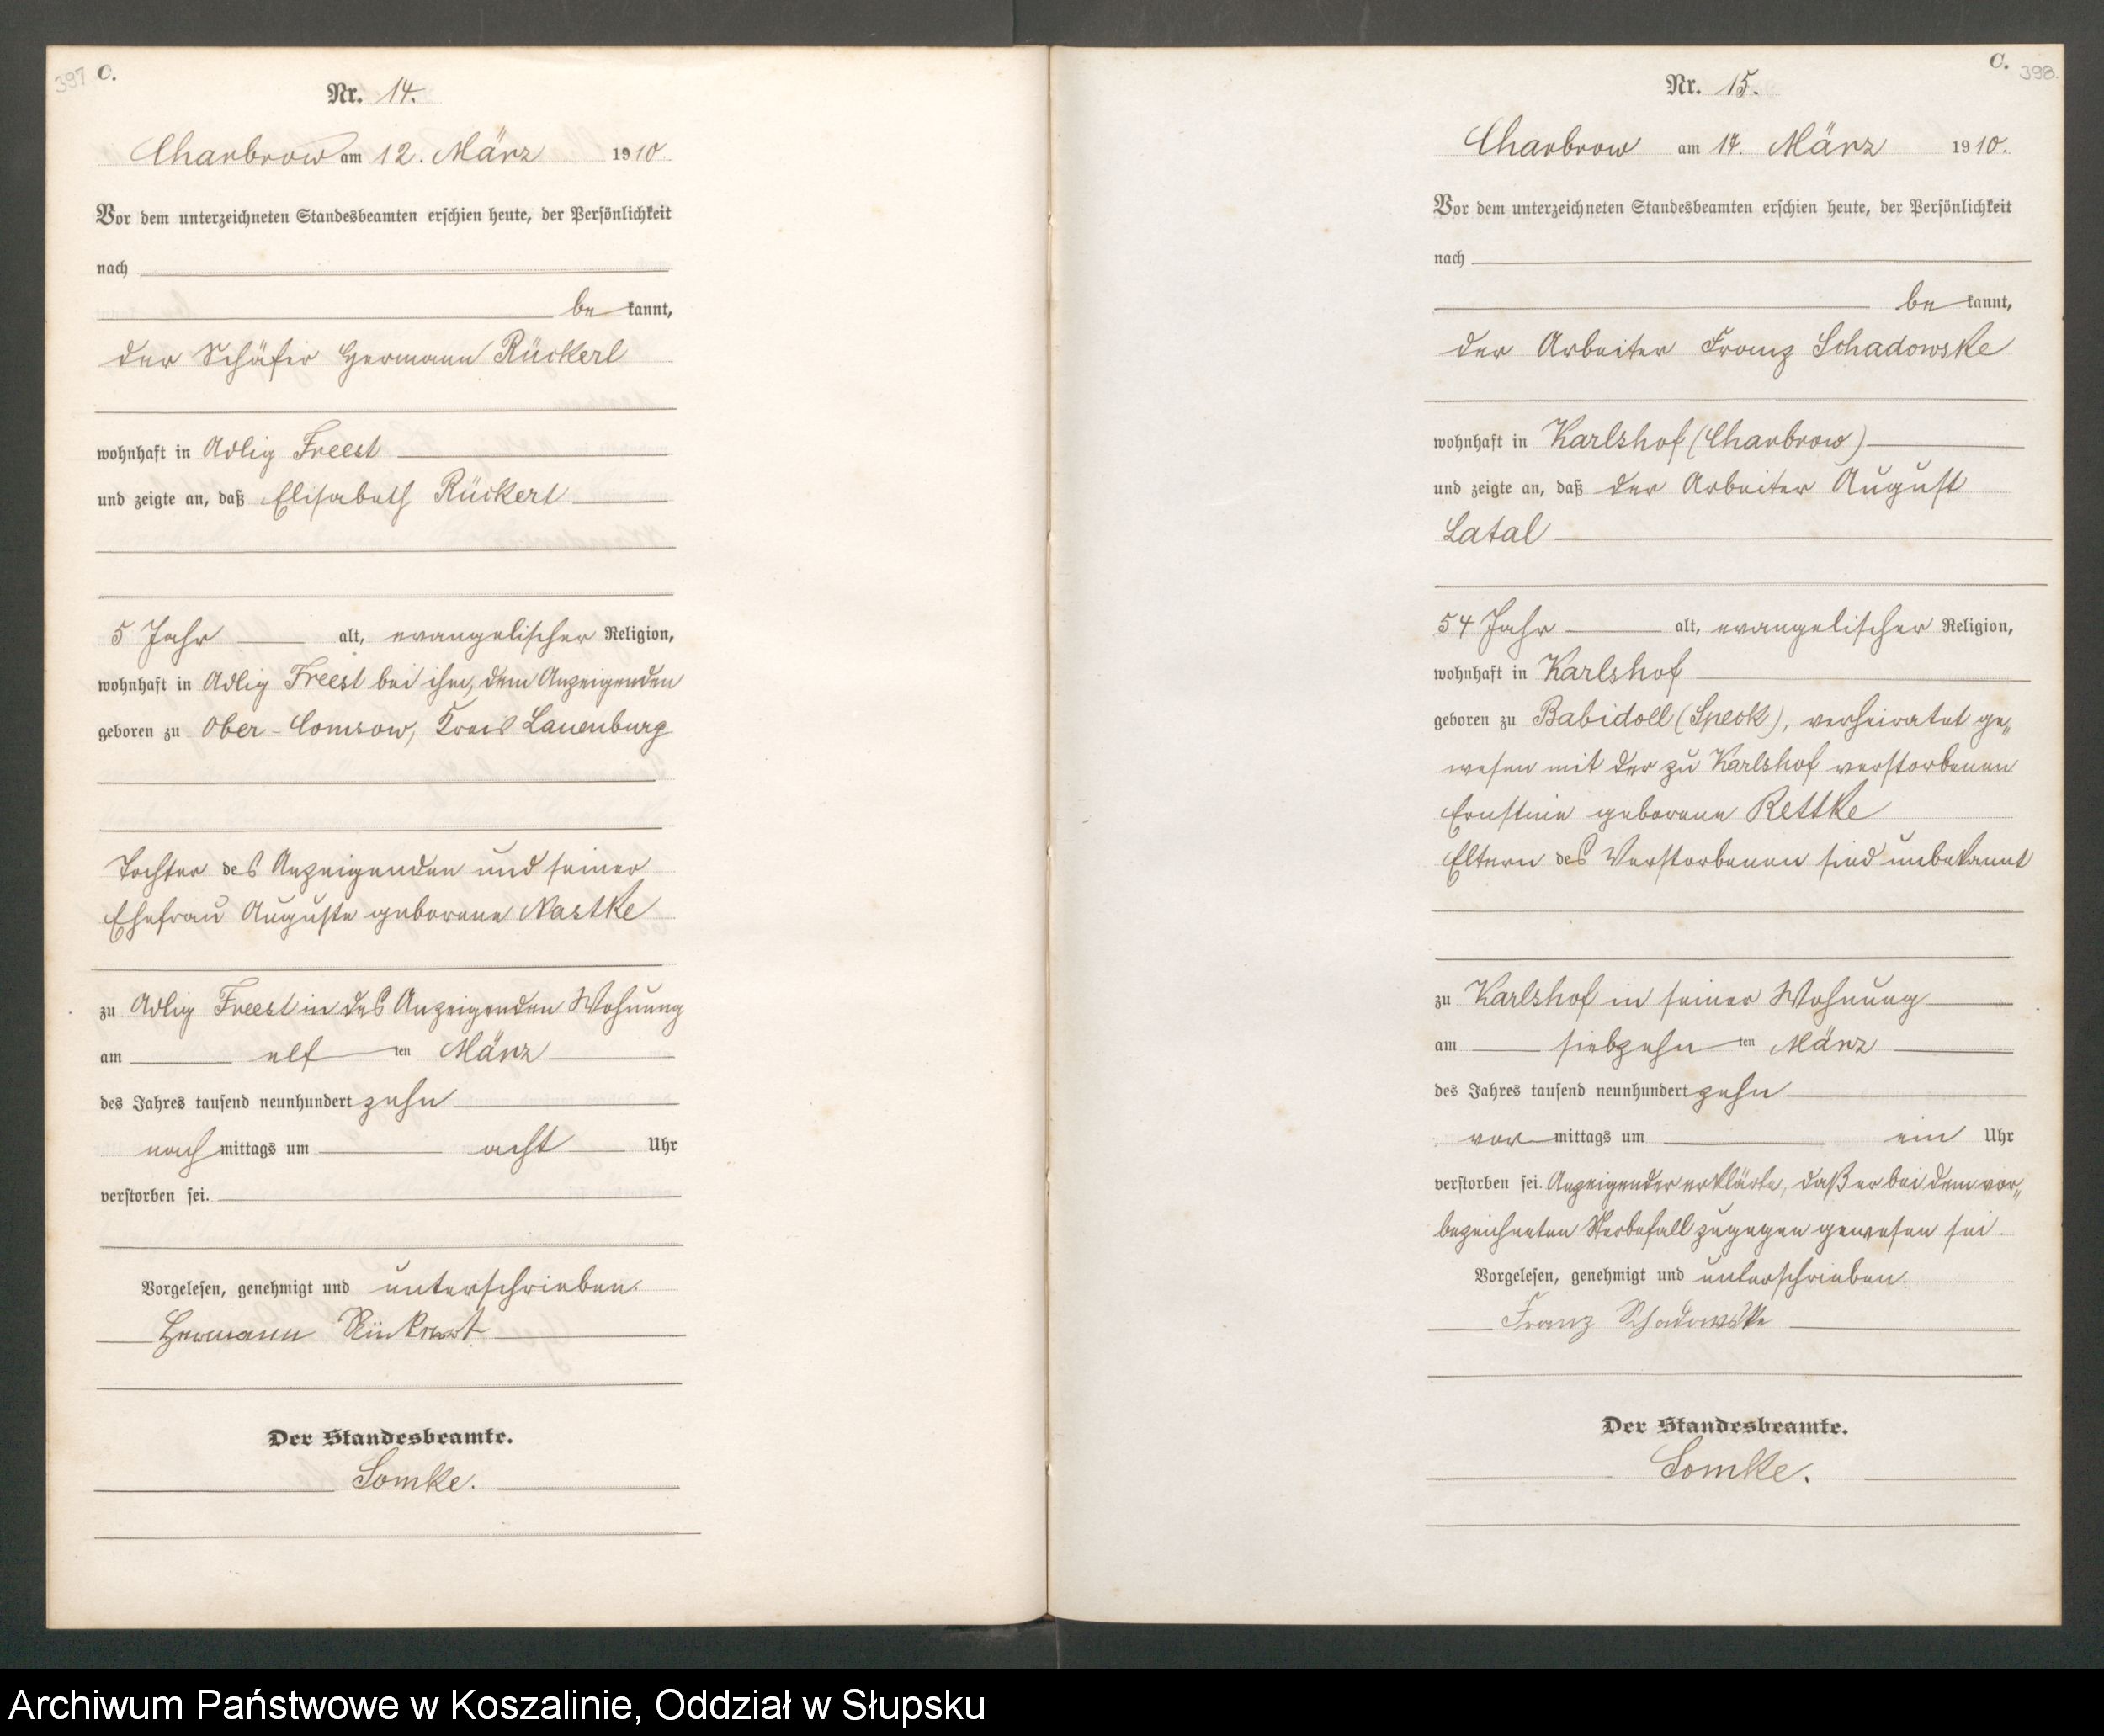 397 C.
Nr. 14.
Charbrow am 12. März 1910.
Vor dem unterzeichneten Standesbeamten erschien heute, der Persönlichkeit
nach
be kannt,
der Schäfer Hermann Rückert
wohnhaft in Adlig Freest
und zeigte an, daß Elisabeth Rückert
5 Jahr alt, evangelischer Religion,
wohnhaft in Adlig Freest bei ihm, dem Anzeigenden
geboren zu Ober-Comsow, Kreis Lauenburg
Tochter des Anzeigenden und seiner
Ehefrau Auguste geborene Nastke
zu Adlig Freest in des Anzeigenden Wohnung
am elf ten März
des Jahres tausend neunhundert zehn
nach mittags um acht Uhr
verstorben sei.
Vorgelesen, genehmigt und unterschrieben.
Hermann
Der Standesbeamte.
Somke.
C. 398.
Nr. 15.
Charbrow am 17. März 1910.
Vor dem unterzeichneten Standesbeamten erschien heute, der Persönlichkeit
nach
be kannt,
der Arbeiter Franz Schadowske
wohnhaft in Karlshof (Charbrow)
und zeigte an, daß der Arbeiter August
Latal
54 Jahr alt, evangelischer Religion,
wohnhaft in Karlshof
geboren zu Babidoll (Speck), verheiratet ge„
wesen mit der zu Karlshof verstorbenen
Ernstine geborene Rettke
Eltern des Verstorbenen sind unbekannt
zu Karlshof in seiner Wohnung
am siebzehn ten März
des Jahres tausend neunhundert zehn
vor mittags um ein Uhr
verstorben sei. Anzeigender erklärte, daß er bei dem vor„
bezeichneten Sterbefall zugegen gewesen sei.
Vorgelesen, genehmigt und unterschrieben.
Franz Schadowske
Der Standesbeamte.
Somke.
Archiwum Państwowe w Koszalinie, Oddział w Słupsku